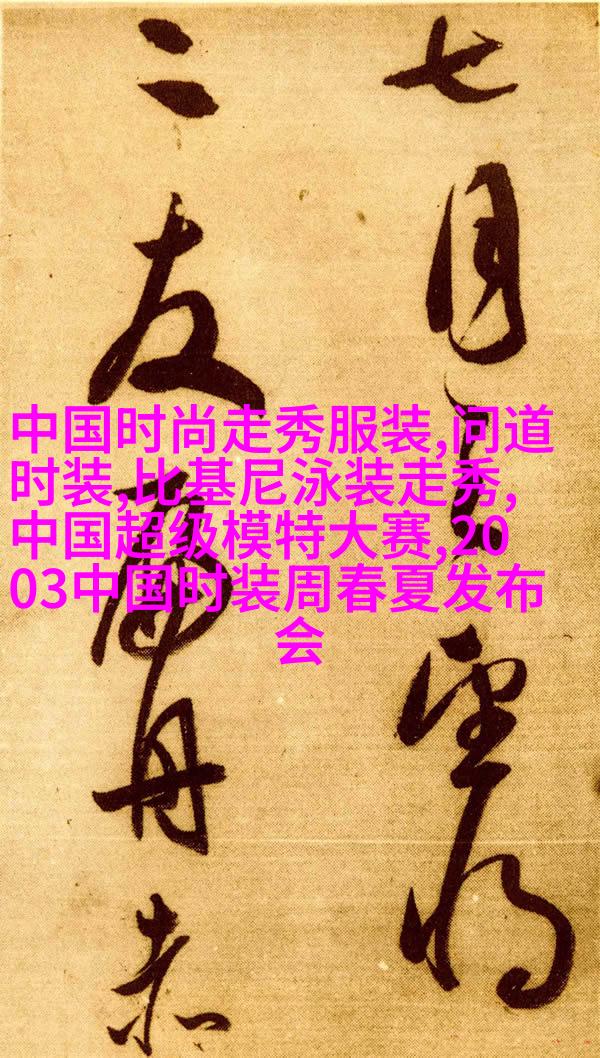 七月望将
二友丹赤
中国时尚走秀服装,问道
时装,比基尼泳装走秀,
中国超级模特大赛,20
03中国时装周春夏发布
会